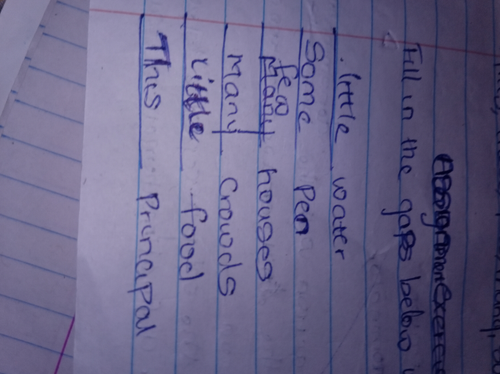 Exercise
Fill in the gaps below
little water
Some Pen
few
houses
Many crowds
Little food
This Principal